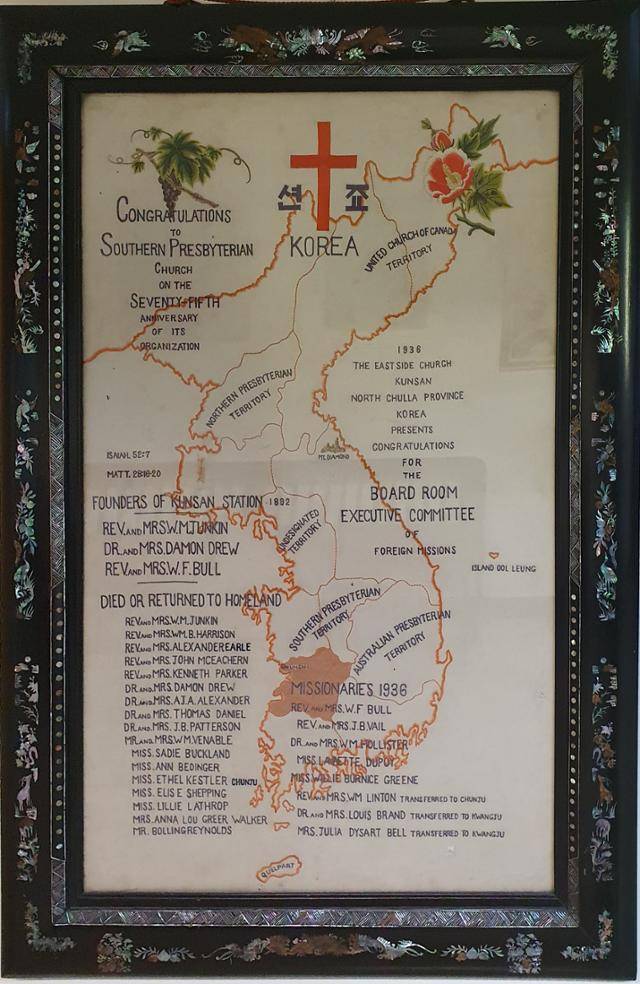 션 죠
KOREA
CONGRATULATIONS
TO
SOUTHERN PRESBYTERIAN
CHURCH
ON THE
SEVENTY-FIFTH
ANNIVERSARY
OF ITS
ORGANIZATION
UNITED CHURCH OF CANADA
TERRITORY
NORTHERN PRESBYTERIAN
TERRITORY
1936
THE EAST SIDE CHURCH
KUNSAN
NORTH CHULLA PROVINCE
KOREA
PRESENTS
CONGRATULATIONS
FOR
THE
BOARD ROOM
EXECUTIVE COMMITTEE
OF
FOREIGN MISSIONS
MT. DIAMOND
ISLAND OOL LEUNG
ISAIAH 52:7
MATT. 28:18-20
FOUNDERS OF KUNSAN STATION 1892
REV. AND MRS. W.M. JUNKIN
DR. AND MRS. DAMON DREW
REV. AND MRS. W.F. BULL
UNDESIGNATED
TERRITORY
SOUTHERN PRESBYTERIAN
TERRITORY
AUSTRALIAN PRESBYTERIAN
TERRITORY
DIED OR RETURNED TO HOMELAND
REV. AND MRS. W.M. JUNKIN
REV. AND MRS. WM. B. HARRISON
REV. AND MRS. ALEXANDER EARLE
REV. AND MRS. JOHN MCEACHERN
REV. AND MRS. KENNETH PARKER
DR. AND MRS. DAMON DREW
DR. AND MRS. A.J.A. ALEXANDER
DR. AND MRS. THOMAS DANIEL
DR. AND MRS. J.B. PATTERSON
MR. AND MRS. W.M. VENABLE
MISS. SADIE BUCKLAND
MISS. ANN BEDINGER
MISS. ETHEL KESTLER CHUNJU
MISS. ELISE SHEPPING
MISS. LILLIE LATHROP
MRS. ANNA LOU GREER WALKER
MR. BOLLING REYNOLDS
MISSIONARIES 1936
REV. AND MRS. W.F BULL
REV. AND MRS. J.B. VAIL
DR. AND MRS. W.M. HOLLISTER
MISS LAVETTE DUPUY
MISS WILLIE BURNICE GREENE
REV. AND MRS. WM LINTON TRANSFERRED TO CHUNJU
DR. AND MRS. LOUIS BRAND TRANSFERRED TO KWANGJU
MRS. JULIA DYSART BELL TRANSFERRED TO KWANGJU
QUELPART